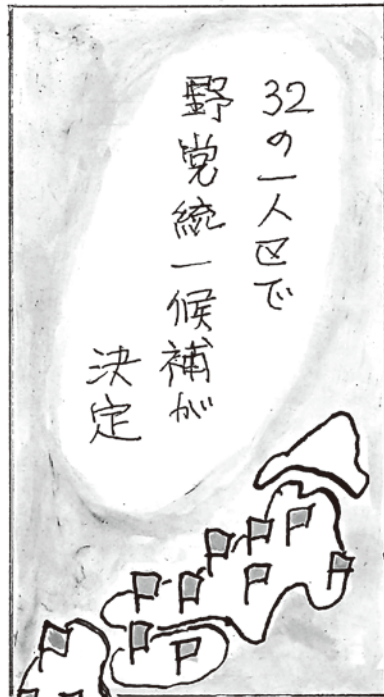 32の一人区で
野党統一候補が
決定